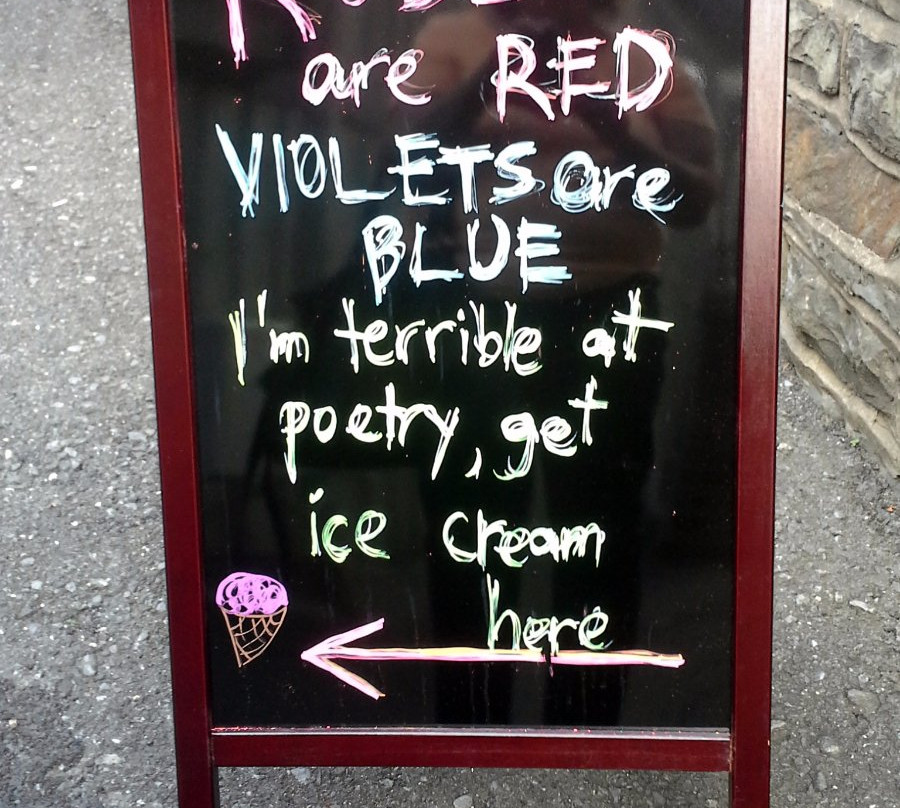 are RED
VIOLETS are
BLUE
I'm terrible at
poetry, get
ice cream
here